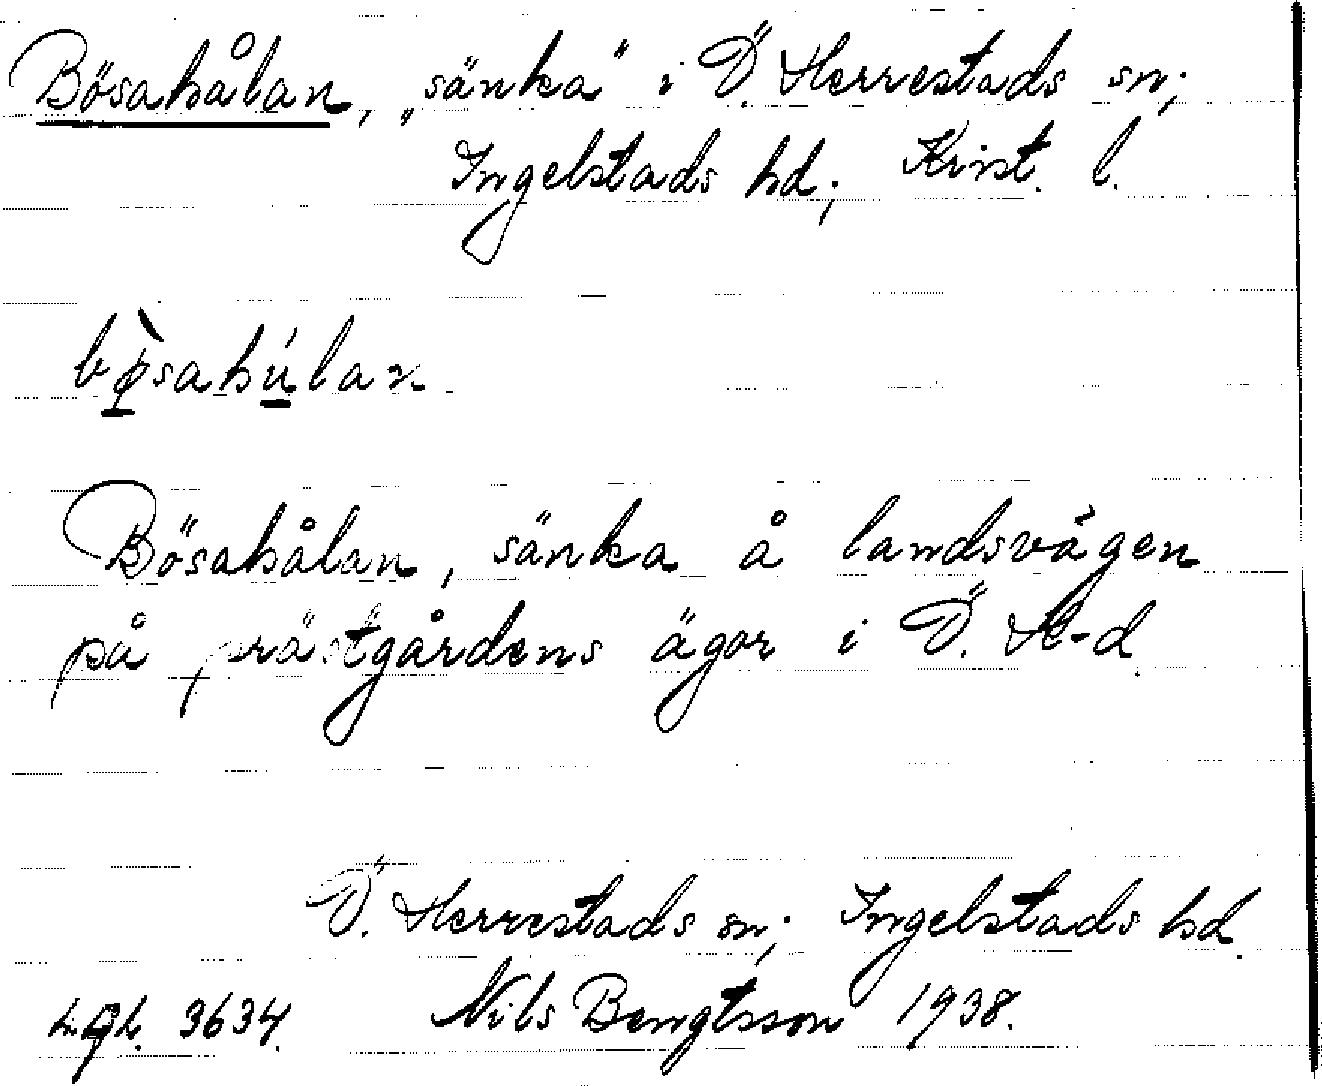 Bösahålan, „sänka" i Ö. Herrestads sn;
Ingelstads hd; Krist. l.
bø̀sahúlan.
Bösahålan, sänka å landsvägen
på prästgårdens ägor i Ö. H-d.
Ö. Herrestads sn; Ingelstads hd.
3634. Nils Bengtsson 1938.